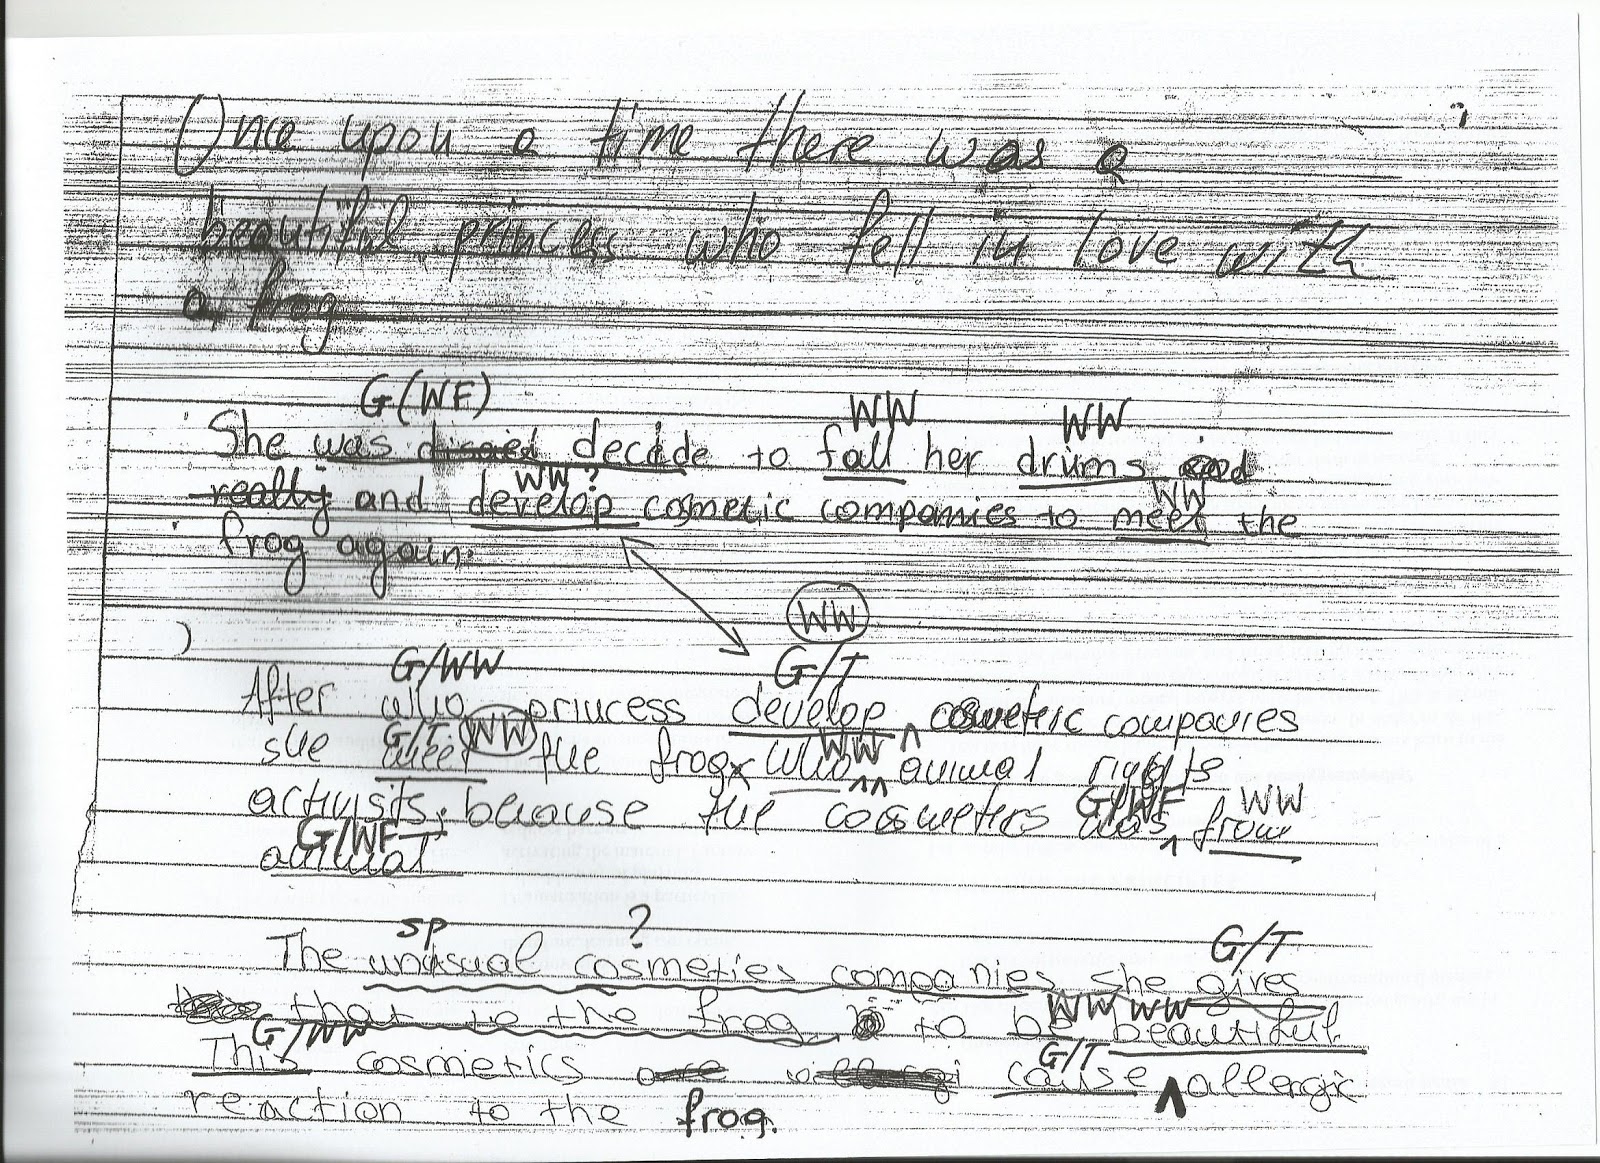 Once upon a time there was a
beautiful princess who fell in love with
a frog
G(WF) WW WW
She was decide to fall her drums and
WW ? WW
really and develop cosmetic companies to meet the
frog again.
WW
G/WW G/T
After who princess develop cosmetic companies
G/T WW WW
she meet the frog who animal rights
G/WF WW
activisits, because the cosmeters was from
G/WF
animal
sp ? G/T
The unusual cosmeties companies she gives
WW WW
that to the frog to be beautiful.
G/WW G/T
This cosmetics are cause allergic
reaction to the frog.